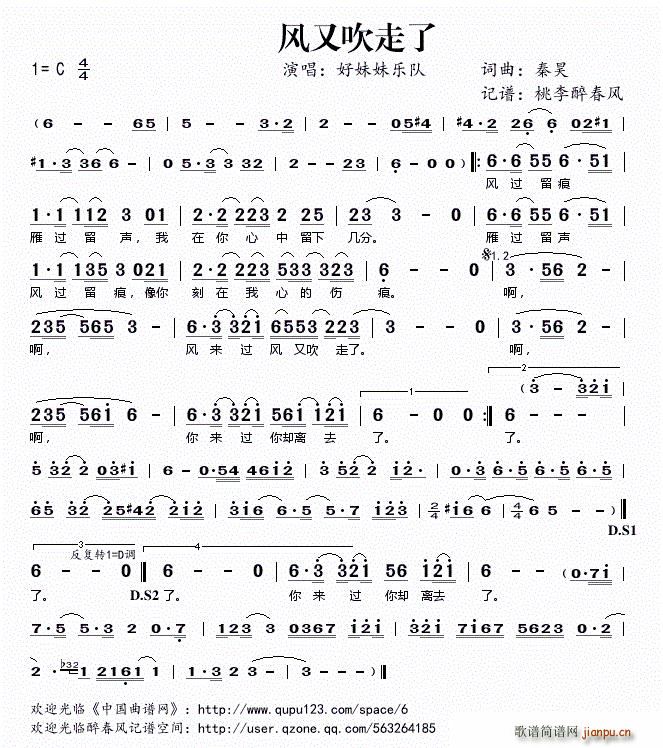 风又吹走了
1= C 4/4 演唱：好妹妹乐队 词曲：秦昊
记谱：桃李醉春风
( 6 - - 65 | 5 - - 3·2 | 2 - - 05#4 | #4·2 26 6 02#1 |
#1·3 36 6 - | 0 5 3·3 32 | 2 - - 23 | 6 - 0 0 ) |: 6·6 55 6·51 |
风过 留痕
1·1 112 3 01 | 2·2 223 2 25 | 23 3 - 0 | 6·6 55 6·51 |
雁过 留 声，我 在你 心 中 留下 几分。 雁过 留声
1·1 135 3 021 | 2·2 223 533 323 | 6 - - 0 | 3 ·56 2 - |
𝄋1.2
风过 留 痕，像你 刻在 我 心的 伤 痕。 啊，
235 565 3 - | 6·3 321 6553 223 | 3 - - 0 | 3 ·56 2 - |
啊， 风来 过 风 又吹 走了。 啊，
2
( 3 - 321
235 561 6 - | 6·3 321 561 121 | 6 - 0 0 :| 6 - - - |
1
啊， 你来 过 你却离 去 了。 了。
5 32 2 03#1 | 6 - 0·54 4612 | 3 52 2 12· | 0·3 6·5 6·5 6·5 |
65 32 25#42 212 | 316 6·5 5·7 123 | 2/4 #16 6 | 4/4 6 - 65 - ) ||
D.S1
3 反复转1=D调 4
6 - - 0 || 6 - - 0 | 6·3 321 56 121 | 6 - - (0·71 |
了。 D.S2 了。 你来 过 你却 离去 了。
7·5 5·3 2 0·7 | 123 3 0367 121 | 321 7167 5623 0·2 |
2 · ♭32 1 2161 1 | 1·3 23 3 - | 3 - - - ) ||
欢迎光临《中国曲谱网》：http://www.qupu123.com/space/6
欢迎光临醉春风记谱空间：http://user.qzone.qq.com/563264185
歌谱简谱网
jianpu.cn